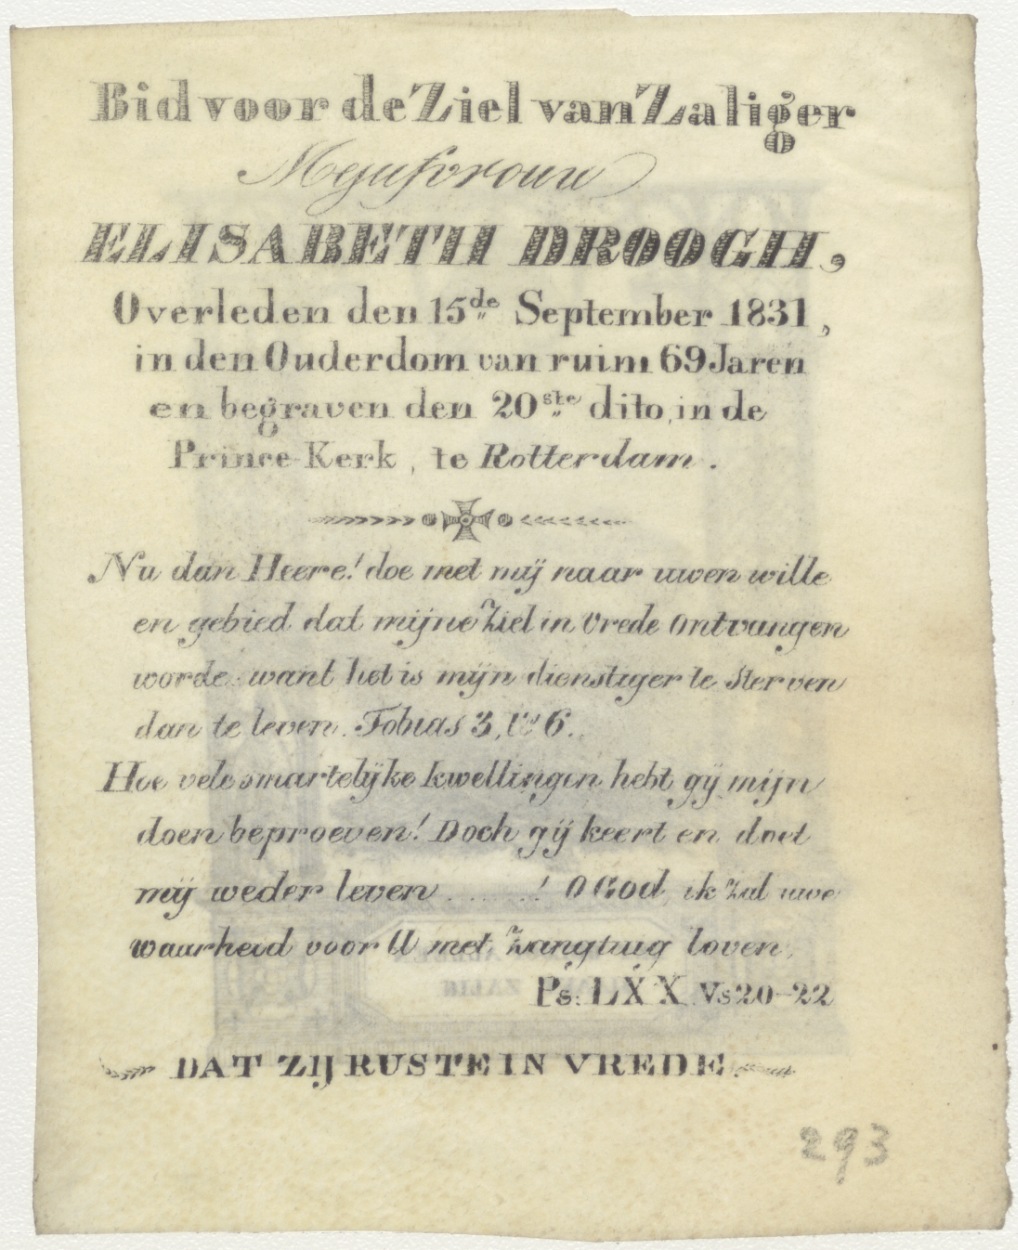 Bid voor de Ziel van Zaliger
Mejufvrouw
ELISABETH DROOGH,
Overleden den 15de September 1831,
in den Ouderdom van ruim 69 Jaren
en begraven den 20ste dito, in de
Prince-Kerk, te Rotterdam.
Nu dan Heere! doe met mij naar uwen wille
en gebied dat mijne Ziel in Vrede ontvangen
worde: want het is mijn dienstiger te sterven
dan te leven. Tobias 3, Vs 6.
Hoe vele smartelijke kwellingen hebt gij mijn
doen beproeven! Doch gij keert en doet
mij weder leven ......! O God, ik zal uwe
waarheid voor U met Zangtuig loven.
Ps. LXX. Vs 20-22
DAT ZIJ RUSTE IN VREDE.
293